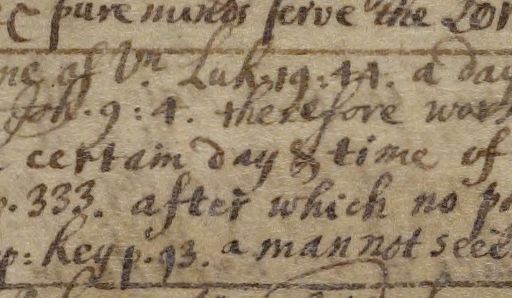 & pure minds serve the Lor
me of Vn. Luk. 19: 44. a day
Joh. 9: 4. therefore wor
certain day & time of
p. 333. after which no p
p: key p. 93. a man not seek